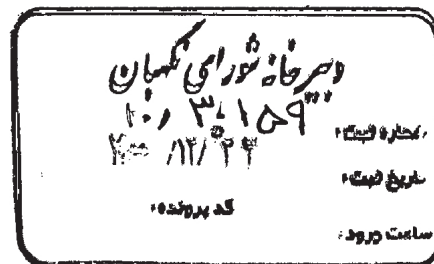 دبیرخانه شورای نگهبان
شماره ثبت:
تاریخ ثبت: ۱۴۰۰/۱۲/۲۴
کد پرونده:
ساعت ورود: